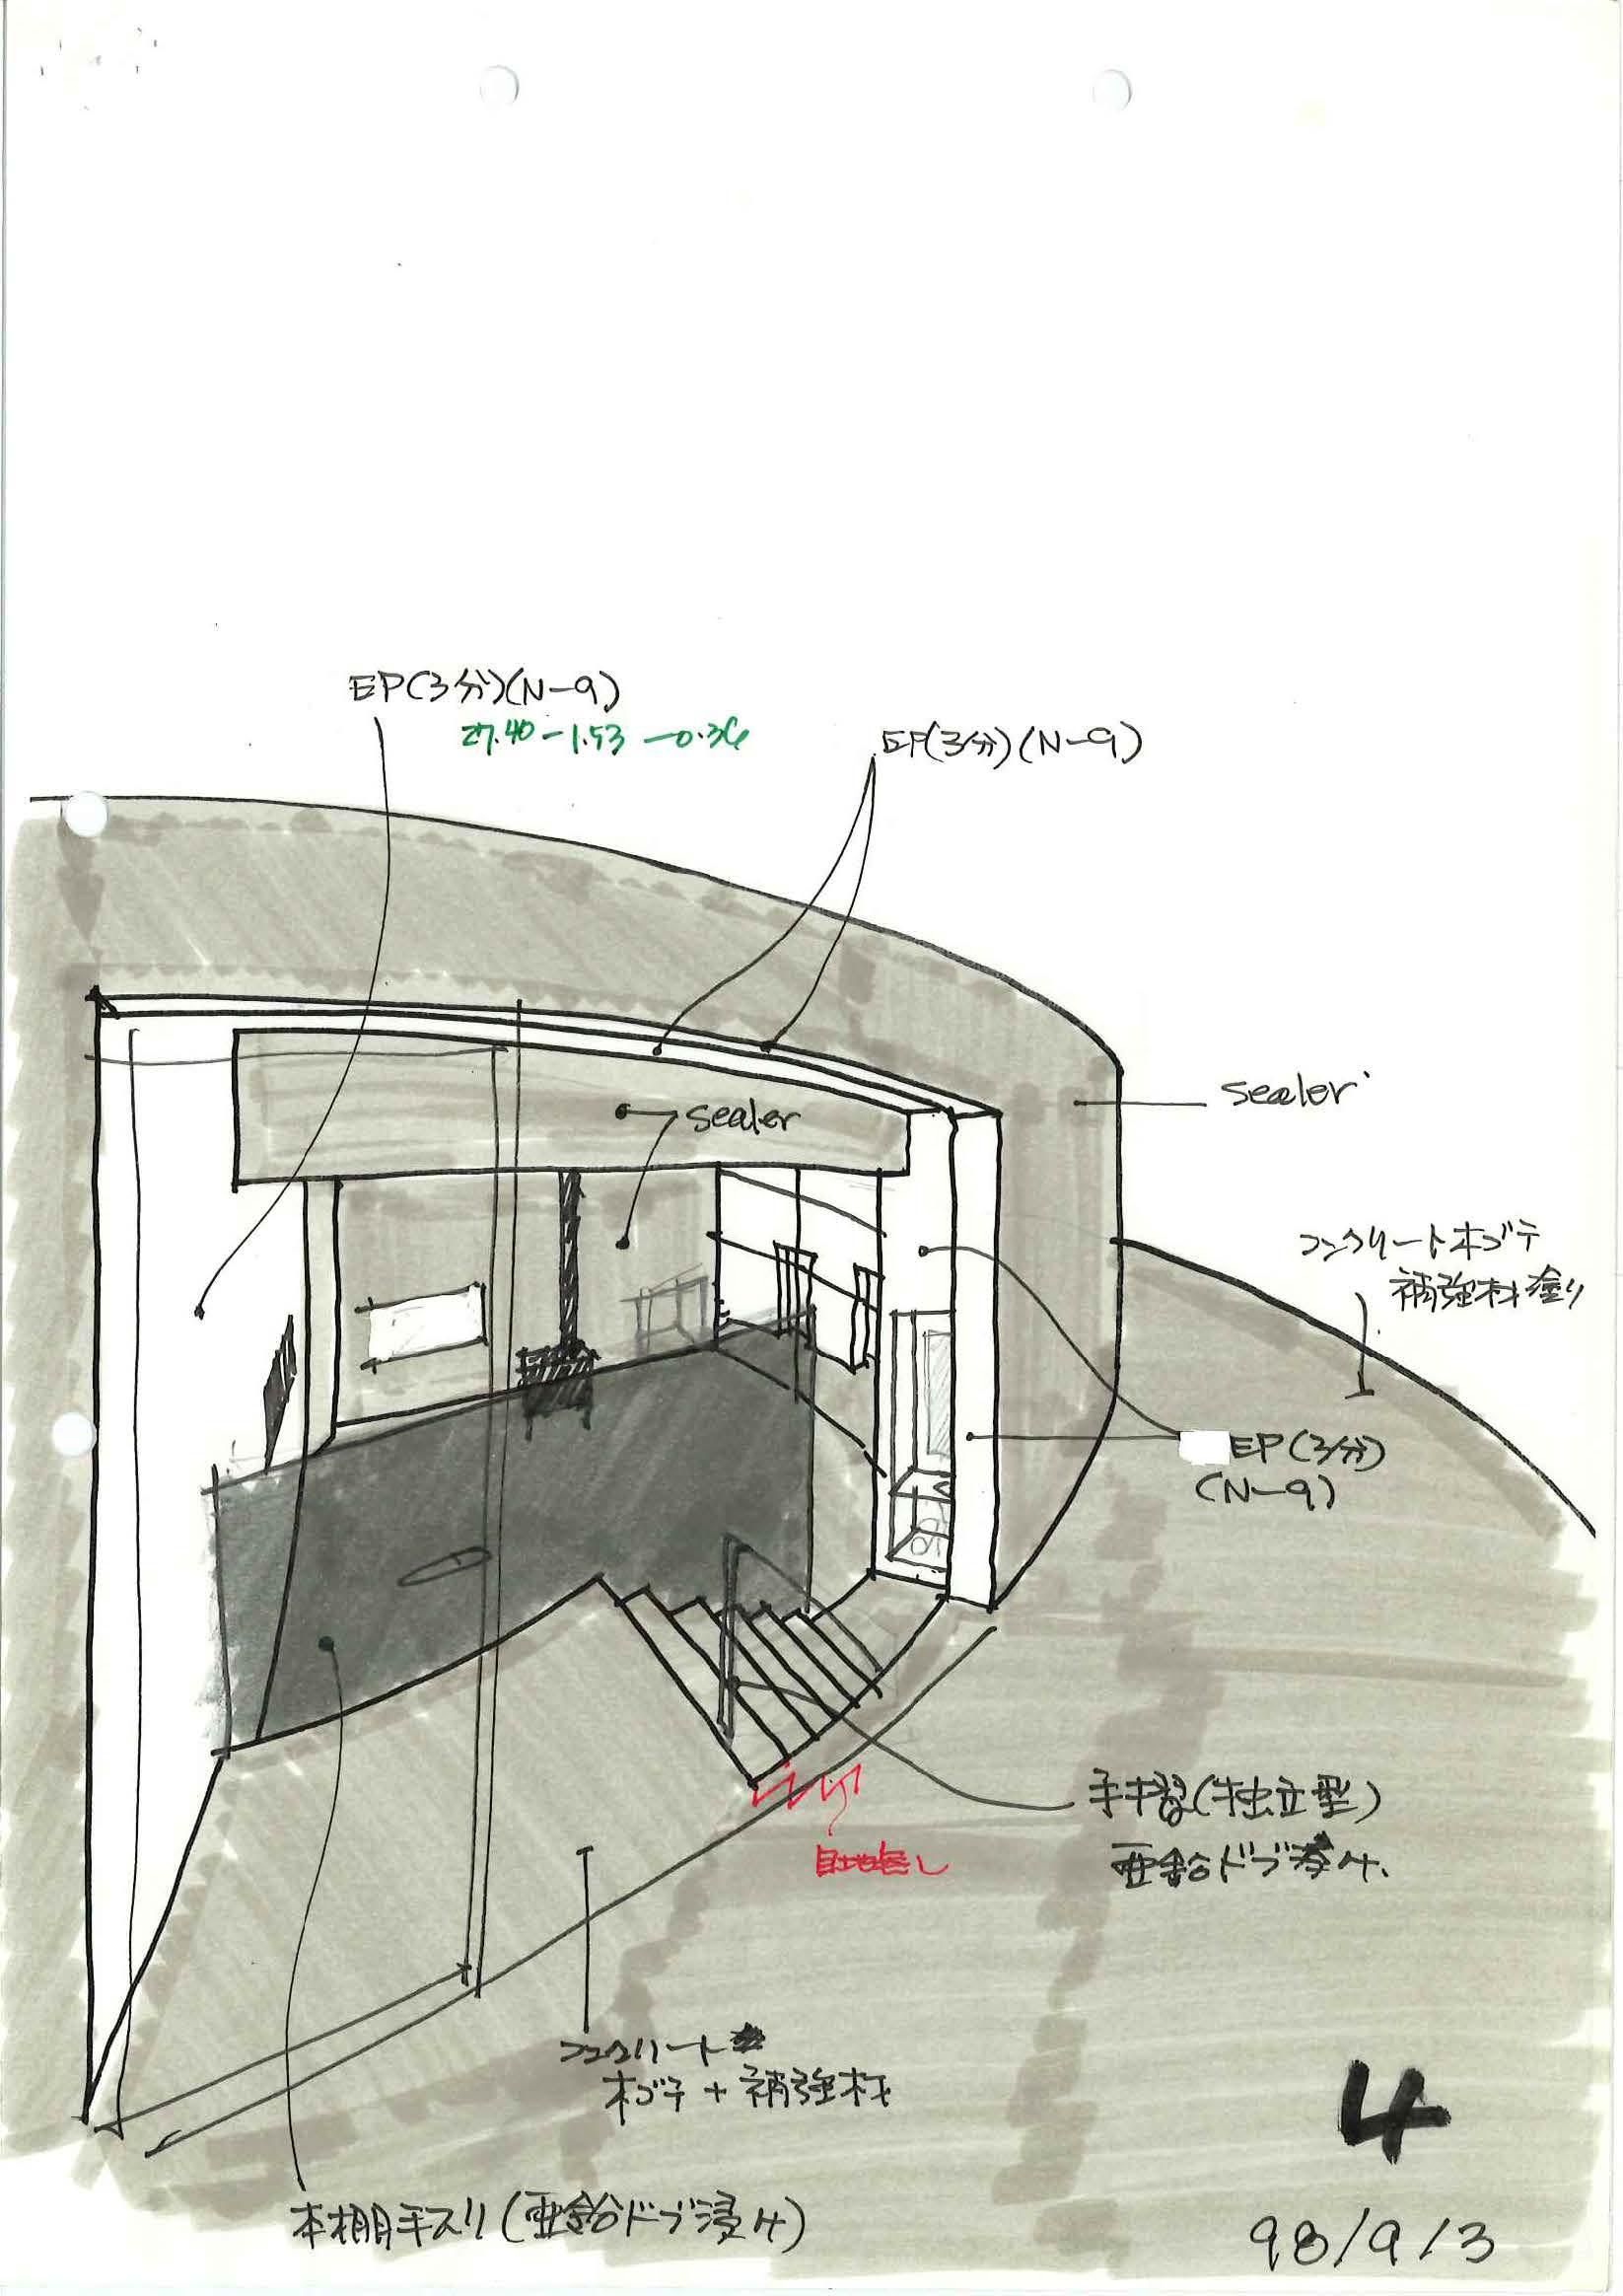 EP(3分)(N-9)
27.40-1.53-0.36
EP(3分)(N-9)
sealer
sealer
コンクリート木ゴテ
補強材塗り
EP(3分)
(N-9)
手摺(独立型)
亜鉛ドブ漬ケ
コンクリート
木ゴテ+補強材
本棚手スリ(亜鉛ドブ浸ケ)
4
98/9/3